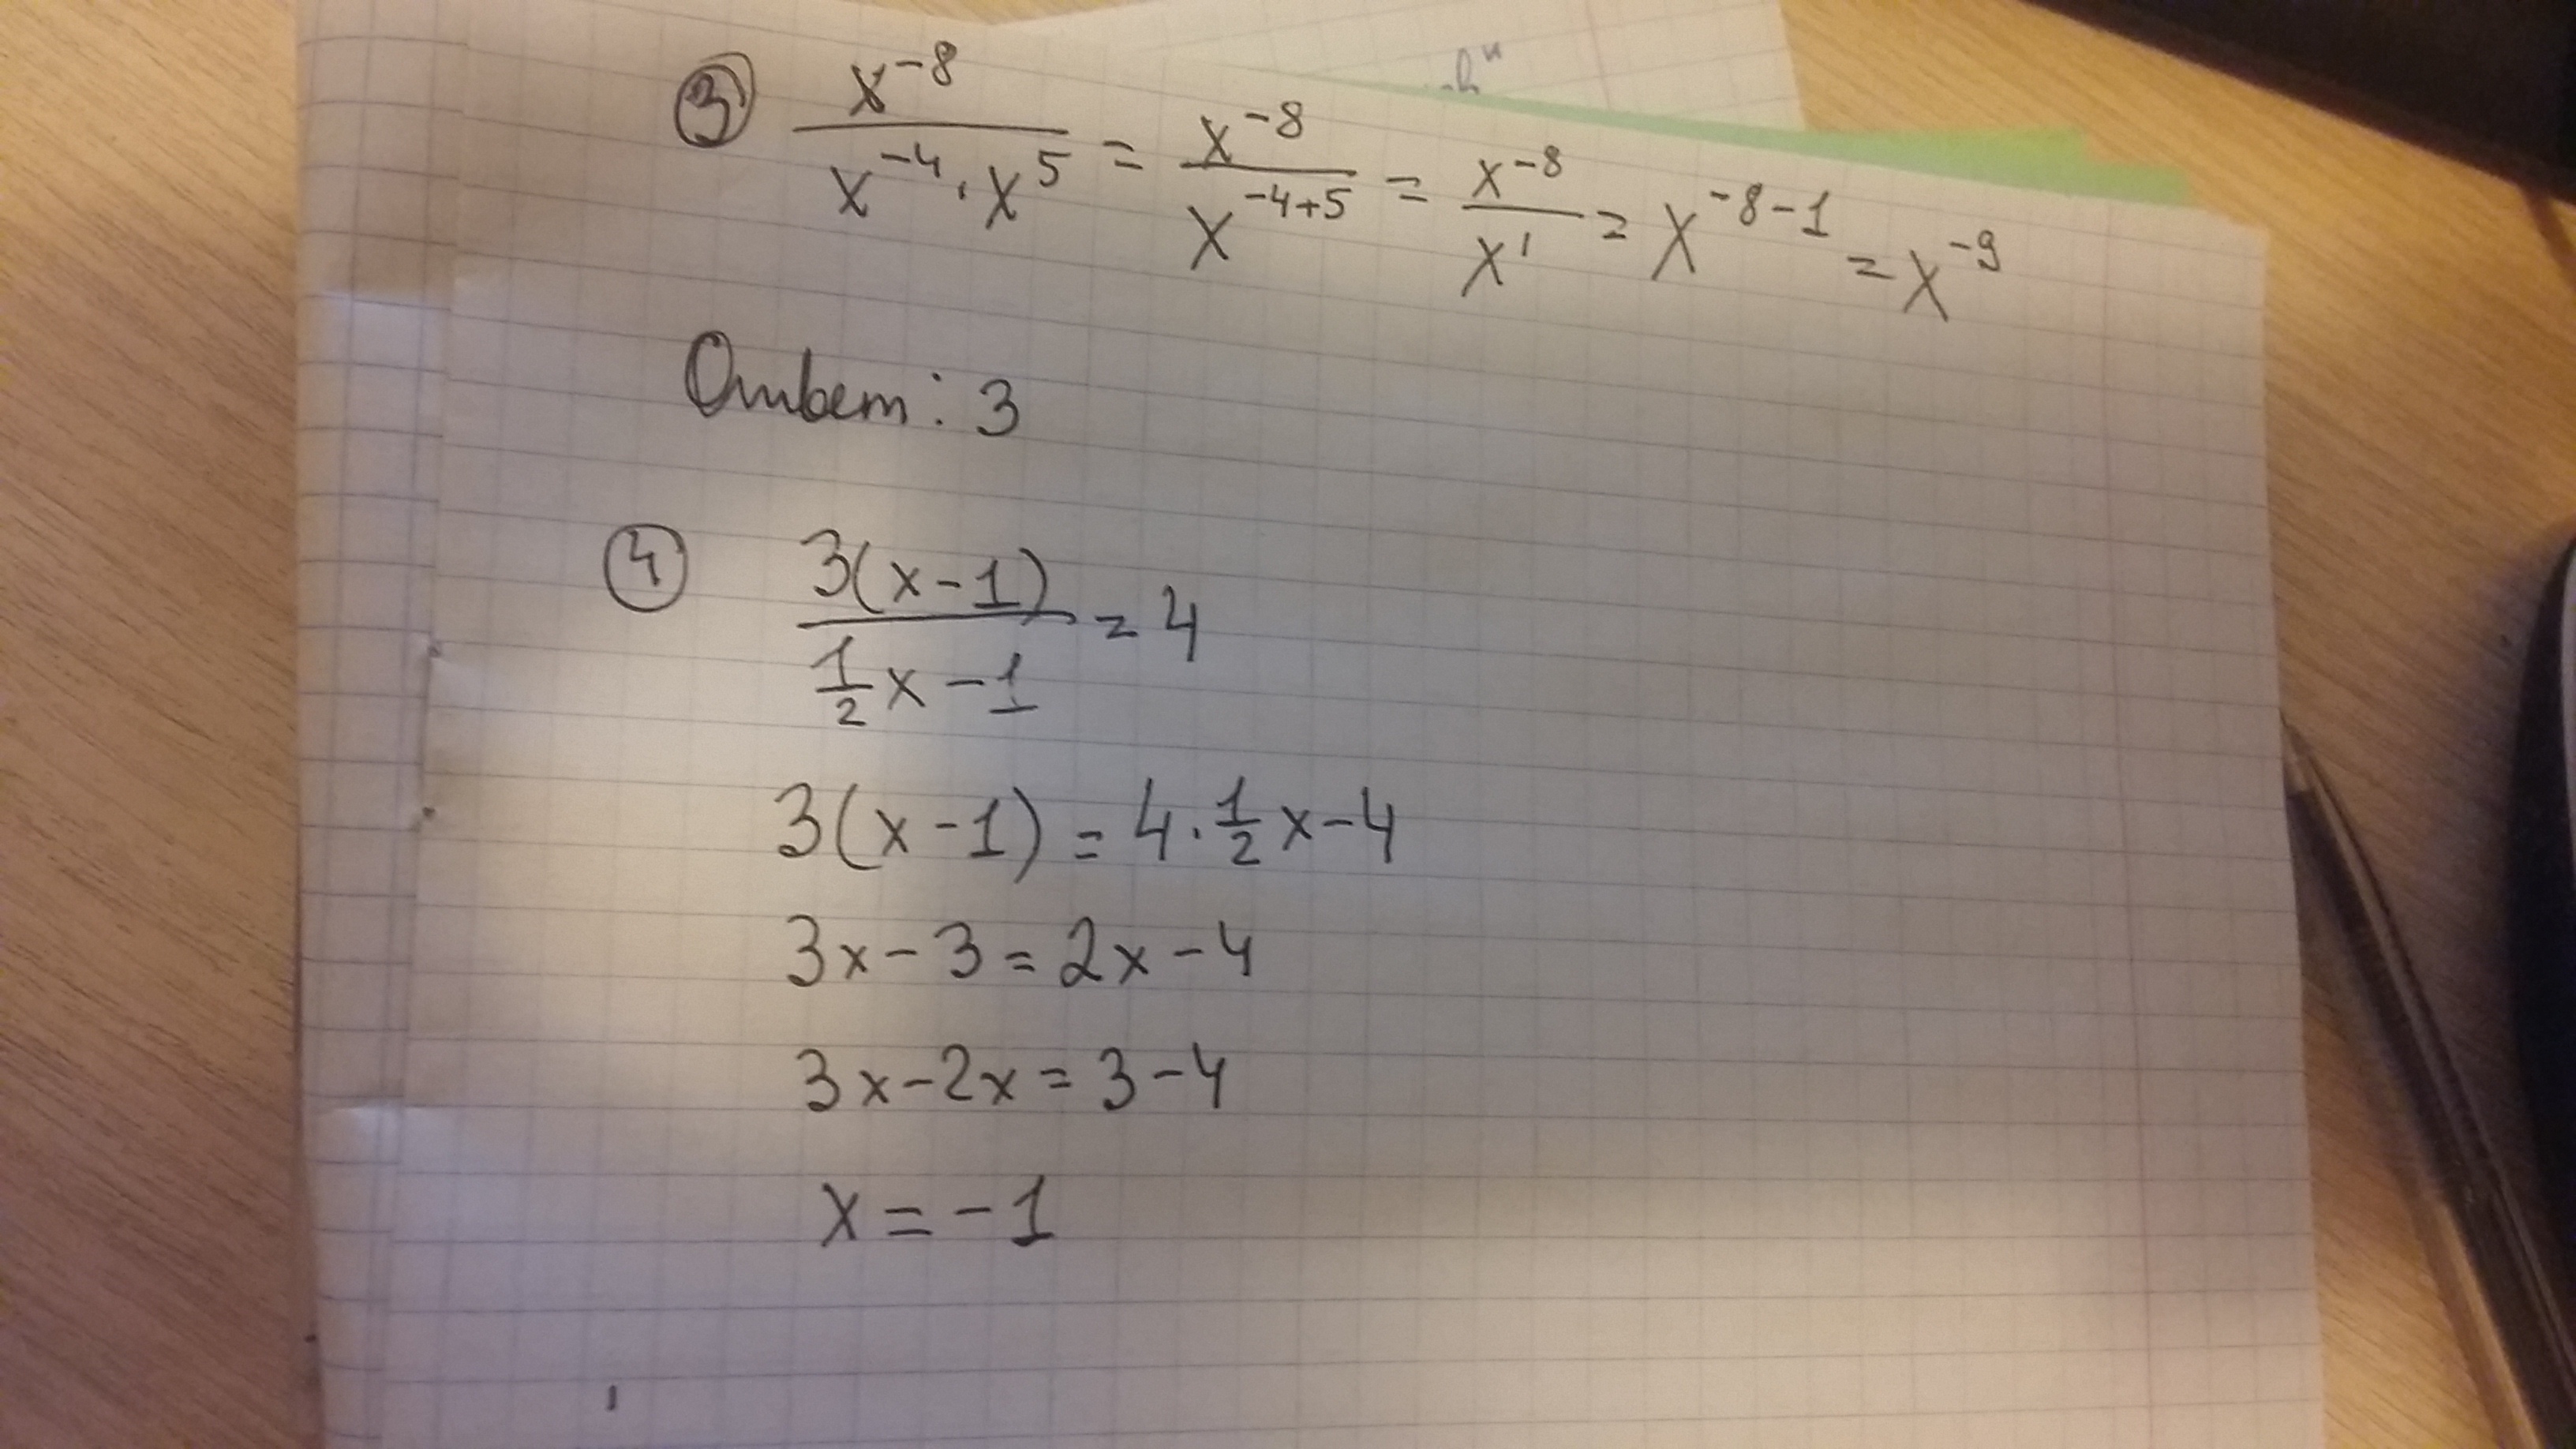 ③ x⁻⁸/(x⁻⁴ · x⁵) = x⁻⁸/x⁻⁴⁺⁵ = x⁻⁸/x¹ = x⁻⁸⁻¹ = x⁻⁹
Ответ: 3
④ 3(x-1)/(½x - 1) = 4
3(x-1) = 4·½x-4
3x-3=2x-4
3x-2x=3-4
x=-1